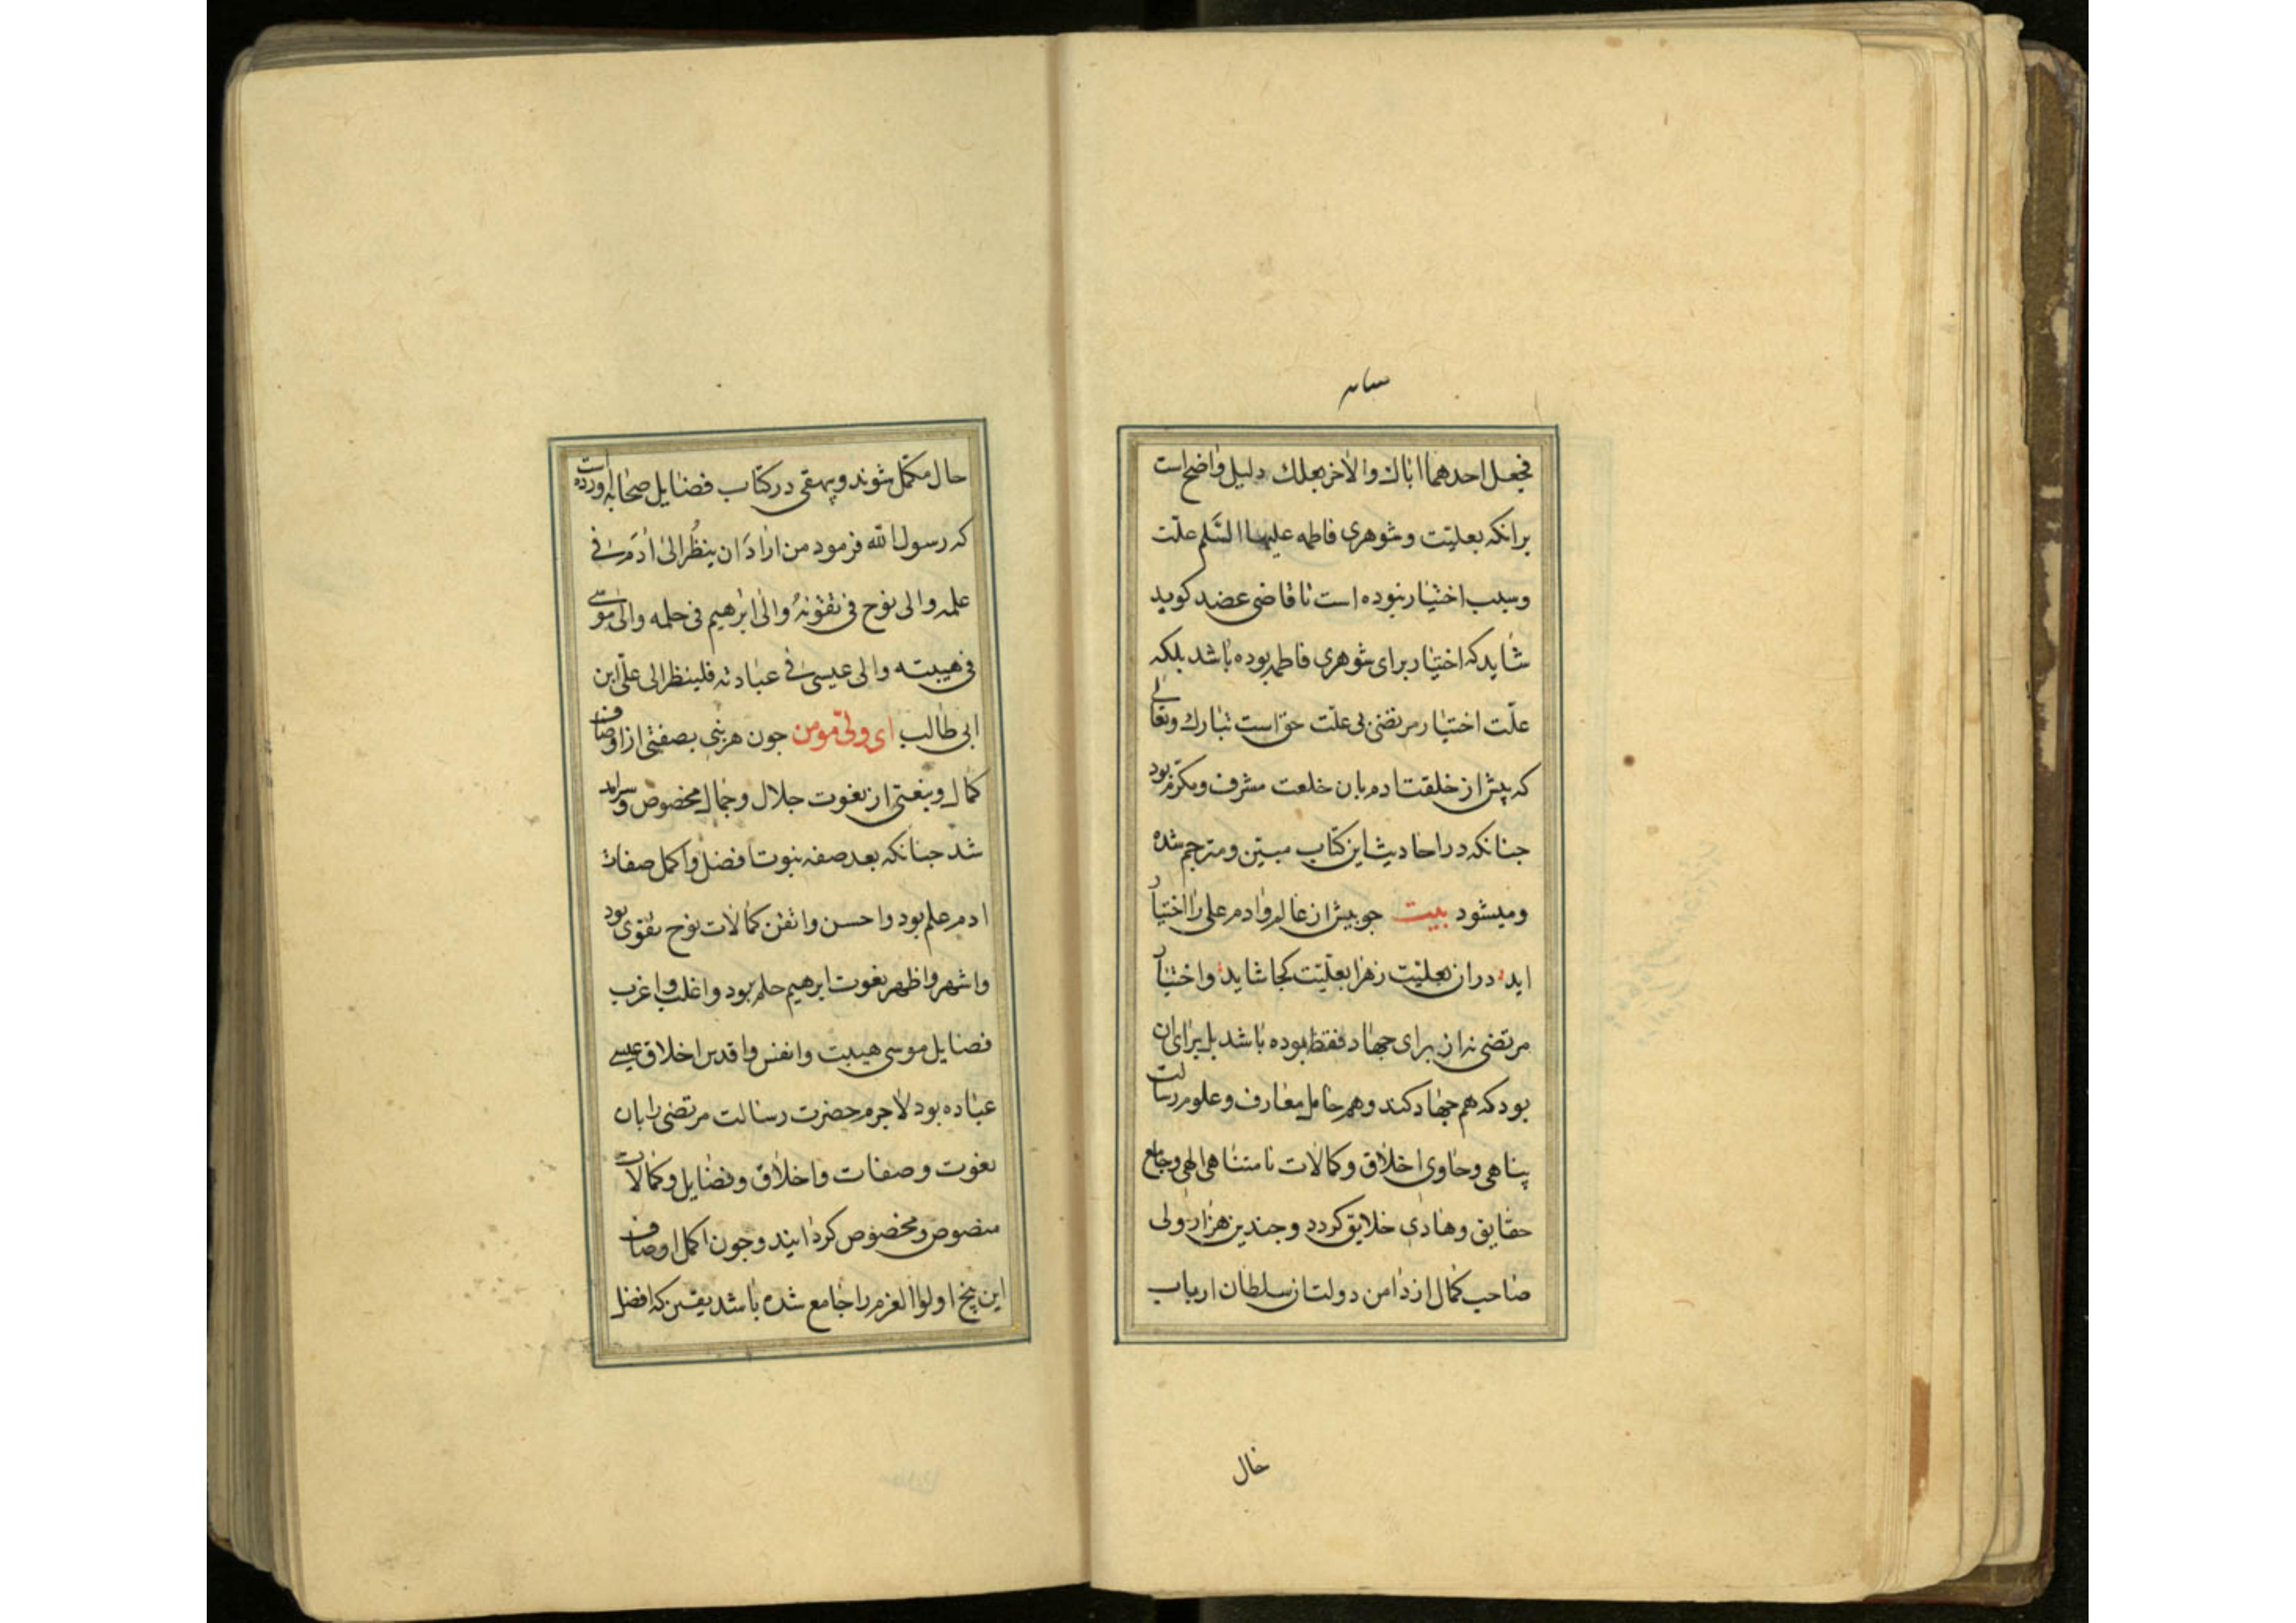 فجعل احدهما اباك والاخر بعلك دلیل واضح است
برانکه بعلیّت و شوهری فاطمه علیها السَّلم علّت
وسبب اختیار نبوده است تا قاضی عضد کوید
شاید که اختیار برای شوهری فاطمه بوده باشد بلکه
علّت اختیار مرتضی بی علّت حق است تبارك وتعالی
که پیش از خلقت ادم بان خلعت مشرف ومکرّم فرمود
جنانکه در احادیث این کتاب مبیّن ومترجم شده
ومیشود بیت جو پیش از عالم وادم علی را اختیار
اید دران بعلیّت زهرا بعلیّت کجا شاید واختیار
مرتضی نه از برای جهاد فقط بوده باشد بل برای ان
بود که هم جهاد کند وهم حامل معارف وعلوم رسالت
پناهی وحاوی اخلاق وکمالات نامتناهی الهی وجامع
حقایق وهادی خلایق کردد وجندین هزار ولی
صاحب کمال از دامن دولت ان سلطان ارباب
حال
حال مکمّل شوند وبیهقی در کتاب فضایل صحابه اورده است
که رسول الله فرمود من ارادَ ان ینظُر الی ادَم فی
علمه والی نوح فی تقوٰیهُ والی ابرٰهیم فی حلمه والی موسی
فی هیبته والی عیسی فی عبادته فلینظر الی علیّ ابن
ابی طالب ای ولیّ مومن جون هر نبی بصفتی از اوصاف
کمال وبنعتی از نعوت جلال وجمال مخصوص وسرامد
شد جنانکه بعد صفه نبوت افضل واکمل صفات
ادم علم بود واحسن واتقن کمالات نوح تقوی بود
واشهر واظهر نعوت ابرهیم حلم بود واغلب واغرب
فضایل موسی هیبت وانفس واقدس اخلاق عیسی
عباده بود لاجرم حضرت رسالت مرتضی را بان
نعوت وصفات واخلاق وفضایل وکمالات
منصوص ومخصوص کردانیند وجون اکمل اوصاف
این پنج اولوا العزم را جامع شده باشد یقین که افضل